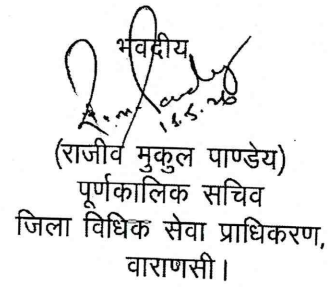 भवदीय
15.5.20
(राजीव मुकुल पाण्डेय)
पूर्णकालिक सचिव
जिला विधिक सेवा प्राधिकरण,
वाराणसी।